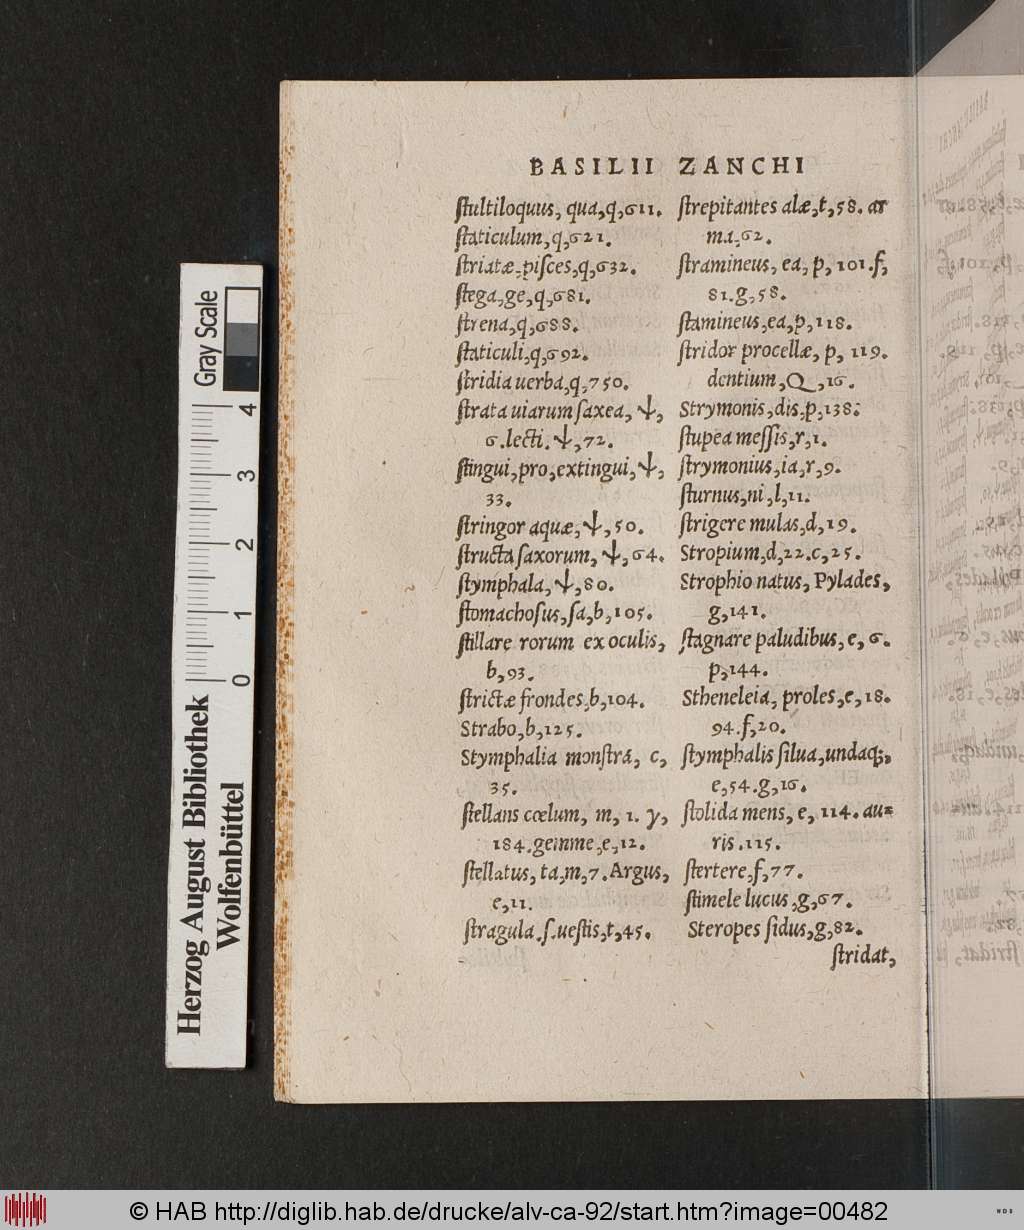 BASILII ZANCHI
ſtultiloquus, qua,q,611.
ſtaticulum,q,621.
ſtriatæ,piſces,q,632.
ſtega,ge,q,681.
ſtrena,q,688.
ſtaticuli,q,692.
ſtridia uerba,q,750.
ſtrata uiarum ſaxea, ψ,
6.lecti.ψ,72.
ſtingui,pro,extingui,ψ,
33.
ſtringor aquæ,ψ,50.
ſtructa ſaxorum, ψ,64.
ſtymphala,ψ,80.
ſtomachoſus,ſa,b,105.
ſtillare rorum ex oculis,
b,93.
ſtrictæ frondes,b,104.
Strabo,b,125.
Stymphalia monſtra, c,
35.
ſtellans cœlum, m, 1. γ,
184.gemme,e,12.
ſtellatus, ta,m,7.Argus,
e,11.
ſtragula.ſ.ueſtis,t,45.
ſtrepitantes alæ,t,58. ar
ma,62.
ſtramineus, ea, p, 101.f,
81.g,58.
ſtamineus,ea,p,118.
ſtridor procellæ, p, 119.
dentium,Q,16.
Strymonis,dis,p,138.
ſtupea meſſis,r,1.
ſtrymonius,ia,r,9.
ſturnus,ni,l,11.
ſtrigere mulas,d,19.
Stropium,d,22.c,25.
Strophio natus, Pylades,
g,141.
ſtagnare paludibus,e,6.
p,144.
Stheneleia, proles,e,18.
94.f,20.
ſtymphalis ſilua,undaq;,
e,54.g,16.
ſtolida mens, e, 114. au=
ris.115.
ſtertere,f,77.
ſtimele lucus,g,67.
Steropes ſidus,g,82.
ſtridat,
Herzog August Bibliothek
Wolfenbüttel
Gray Scale
0 1 2 3 4
© HAB http://diglib.hab.de/drucke/alv-ca-92/start.htm?image=00482
WDB